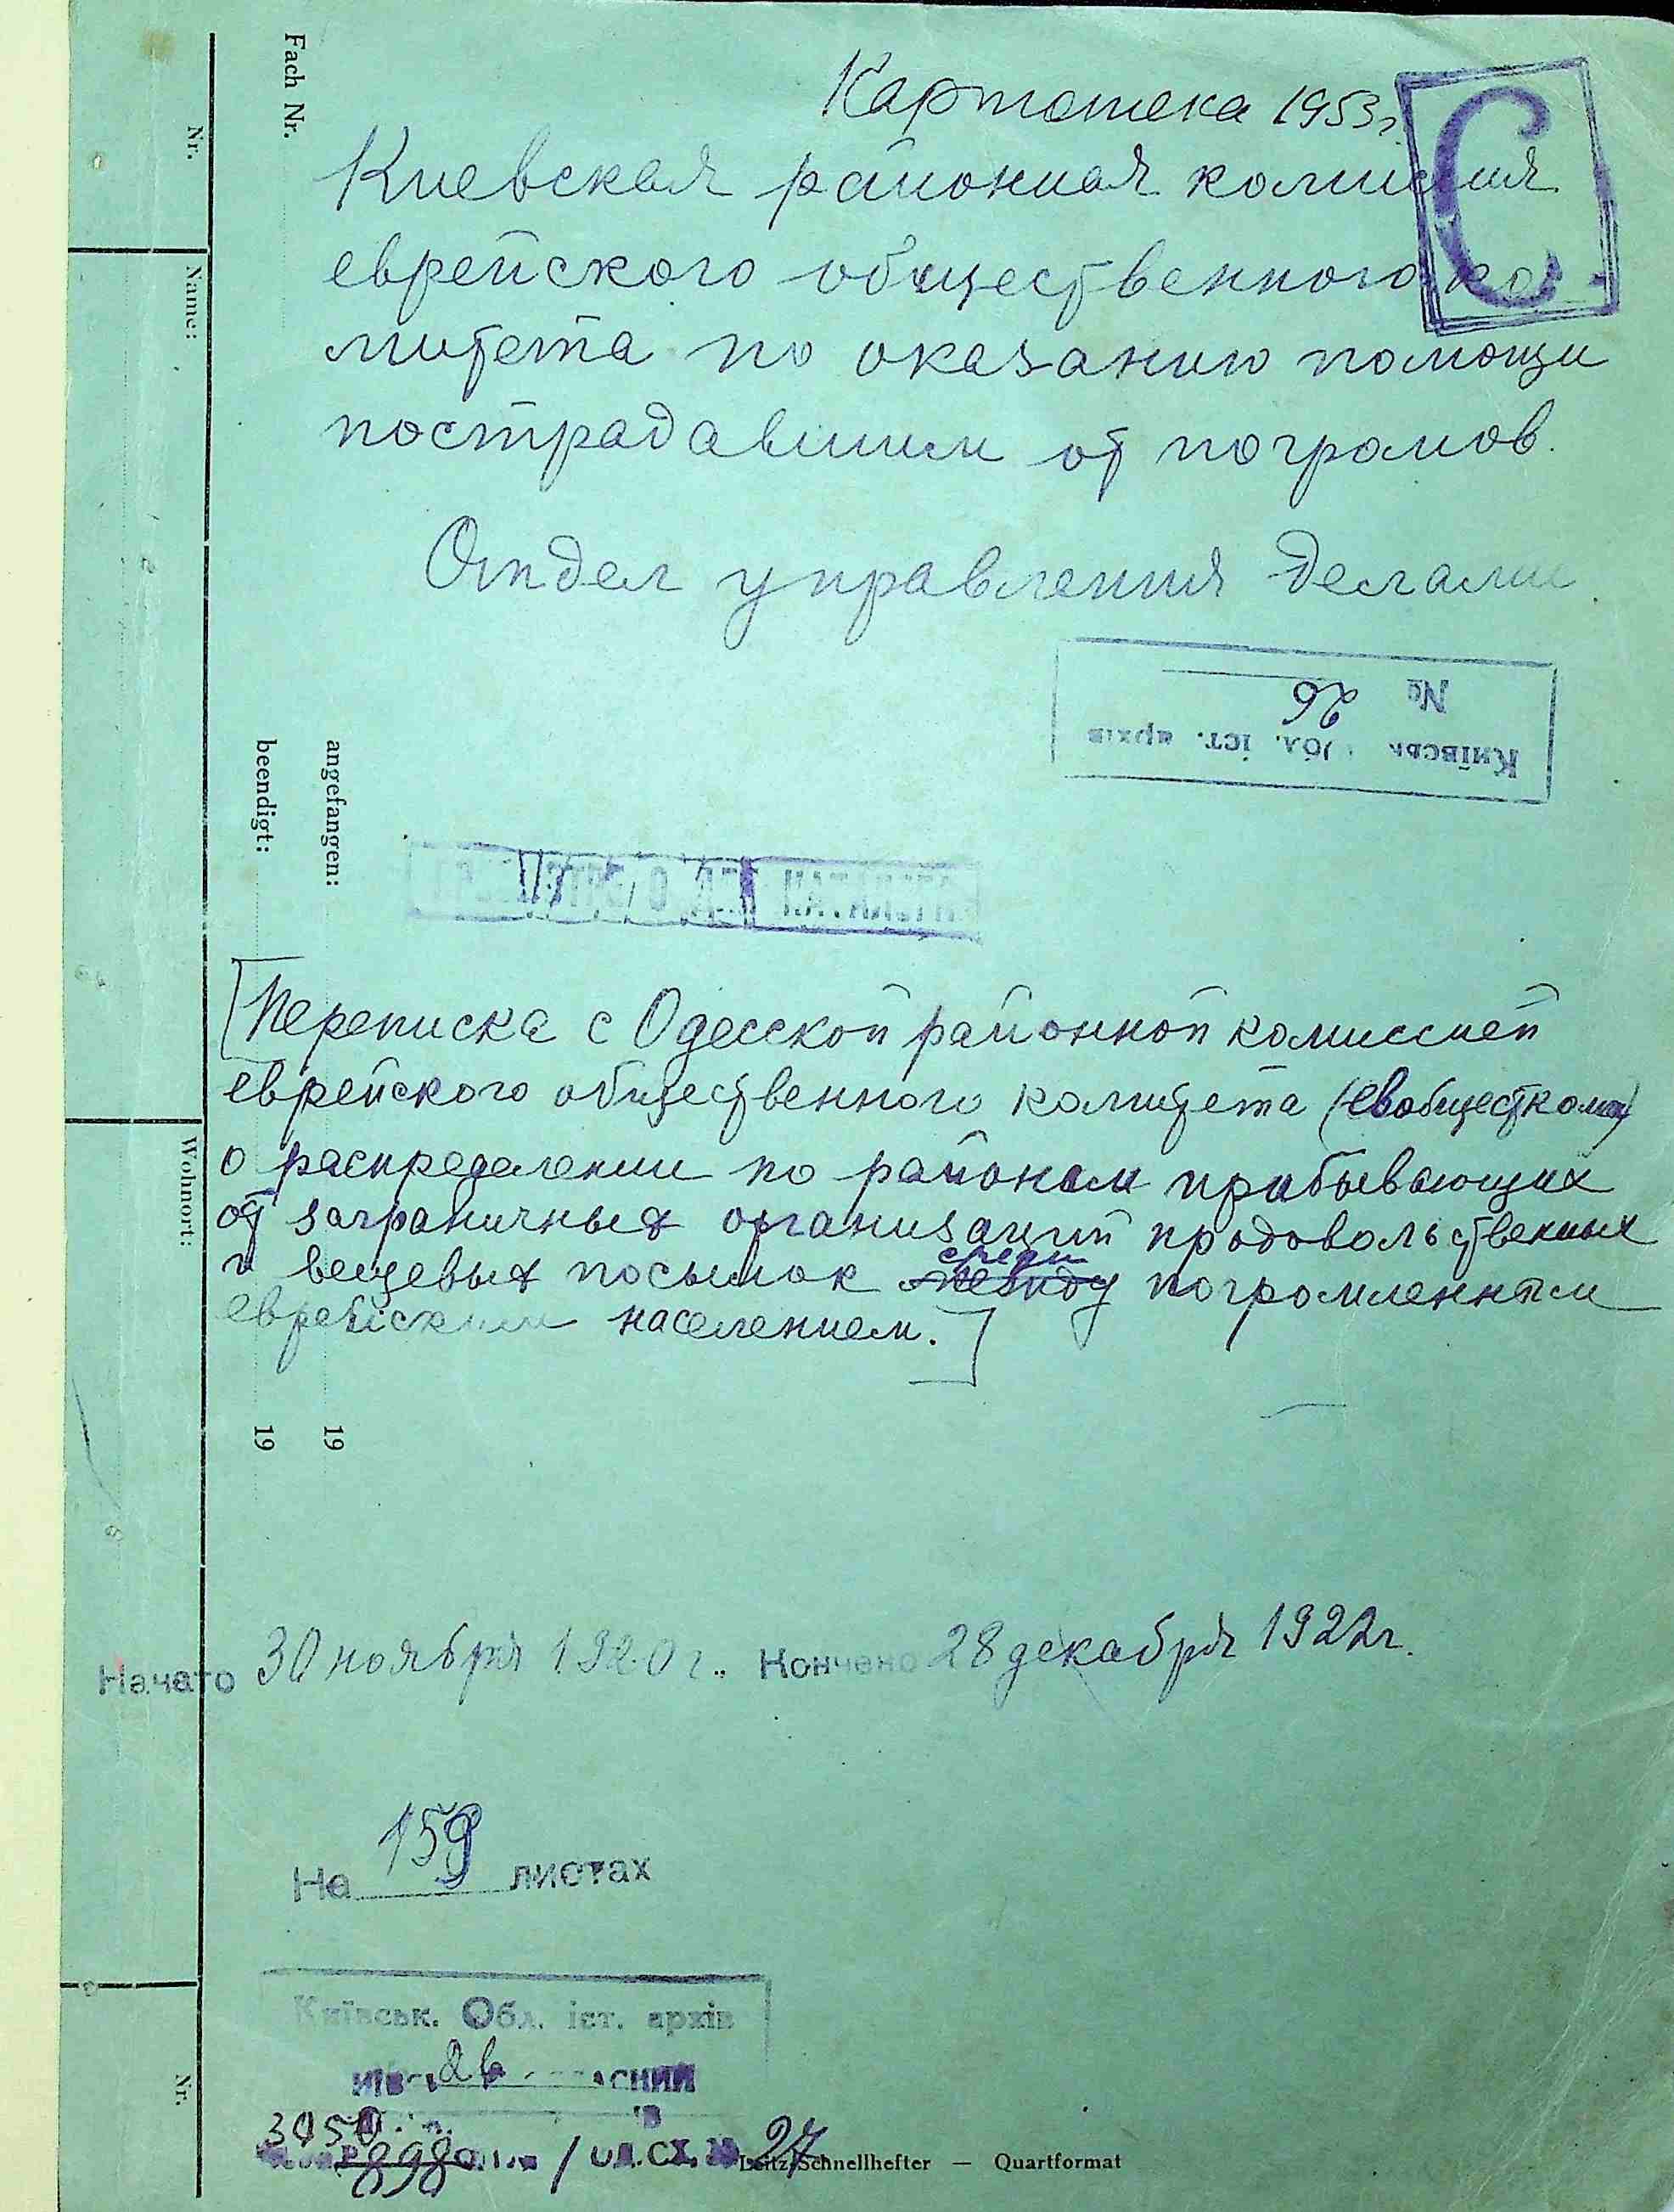 Картотека 1953г.
С
Киевская районная комиссия
еврейского общественного ко-
митета по оказанию помощи
пострадавшим от погромов.
Отдел управления делами
Київськ. Обл. іст. архів
№ 26
[Переписка с Одесской районной комиссией
еврейского общественного комитета (Евобщестком)
о распределении по районам прибывающих
от заграничных организаций продовольственных
и вещевых посылок между среди погромленным
еврейским населением.]
Начато 30 ноября 1920 г. Кончено 28 декабря 1922г.
На 159 листах
Київськ. Обл. іст. архів
3050
Р 898 / од. сх. № 27
Leitz-Schnellhefter — Quartformat
Fach Nr.
Nr.
Name:
angefangen: 19
beendigt: 19
Wohnort:
Nr.